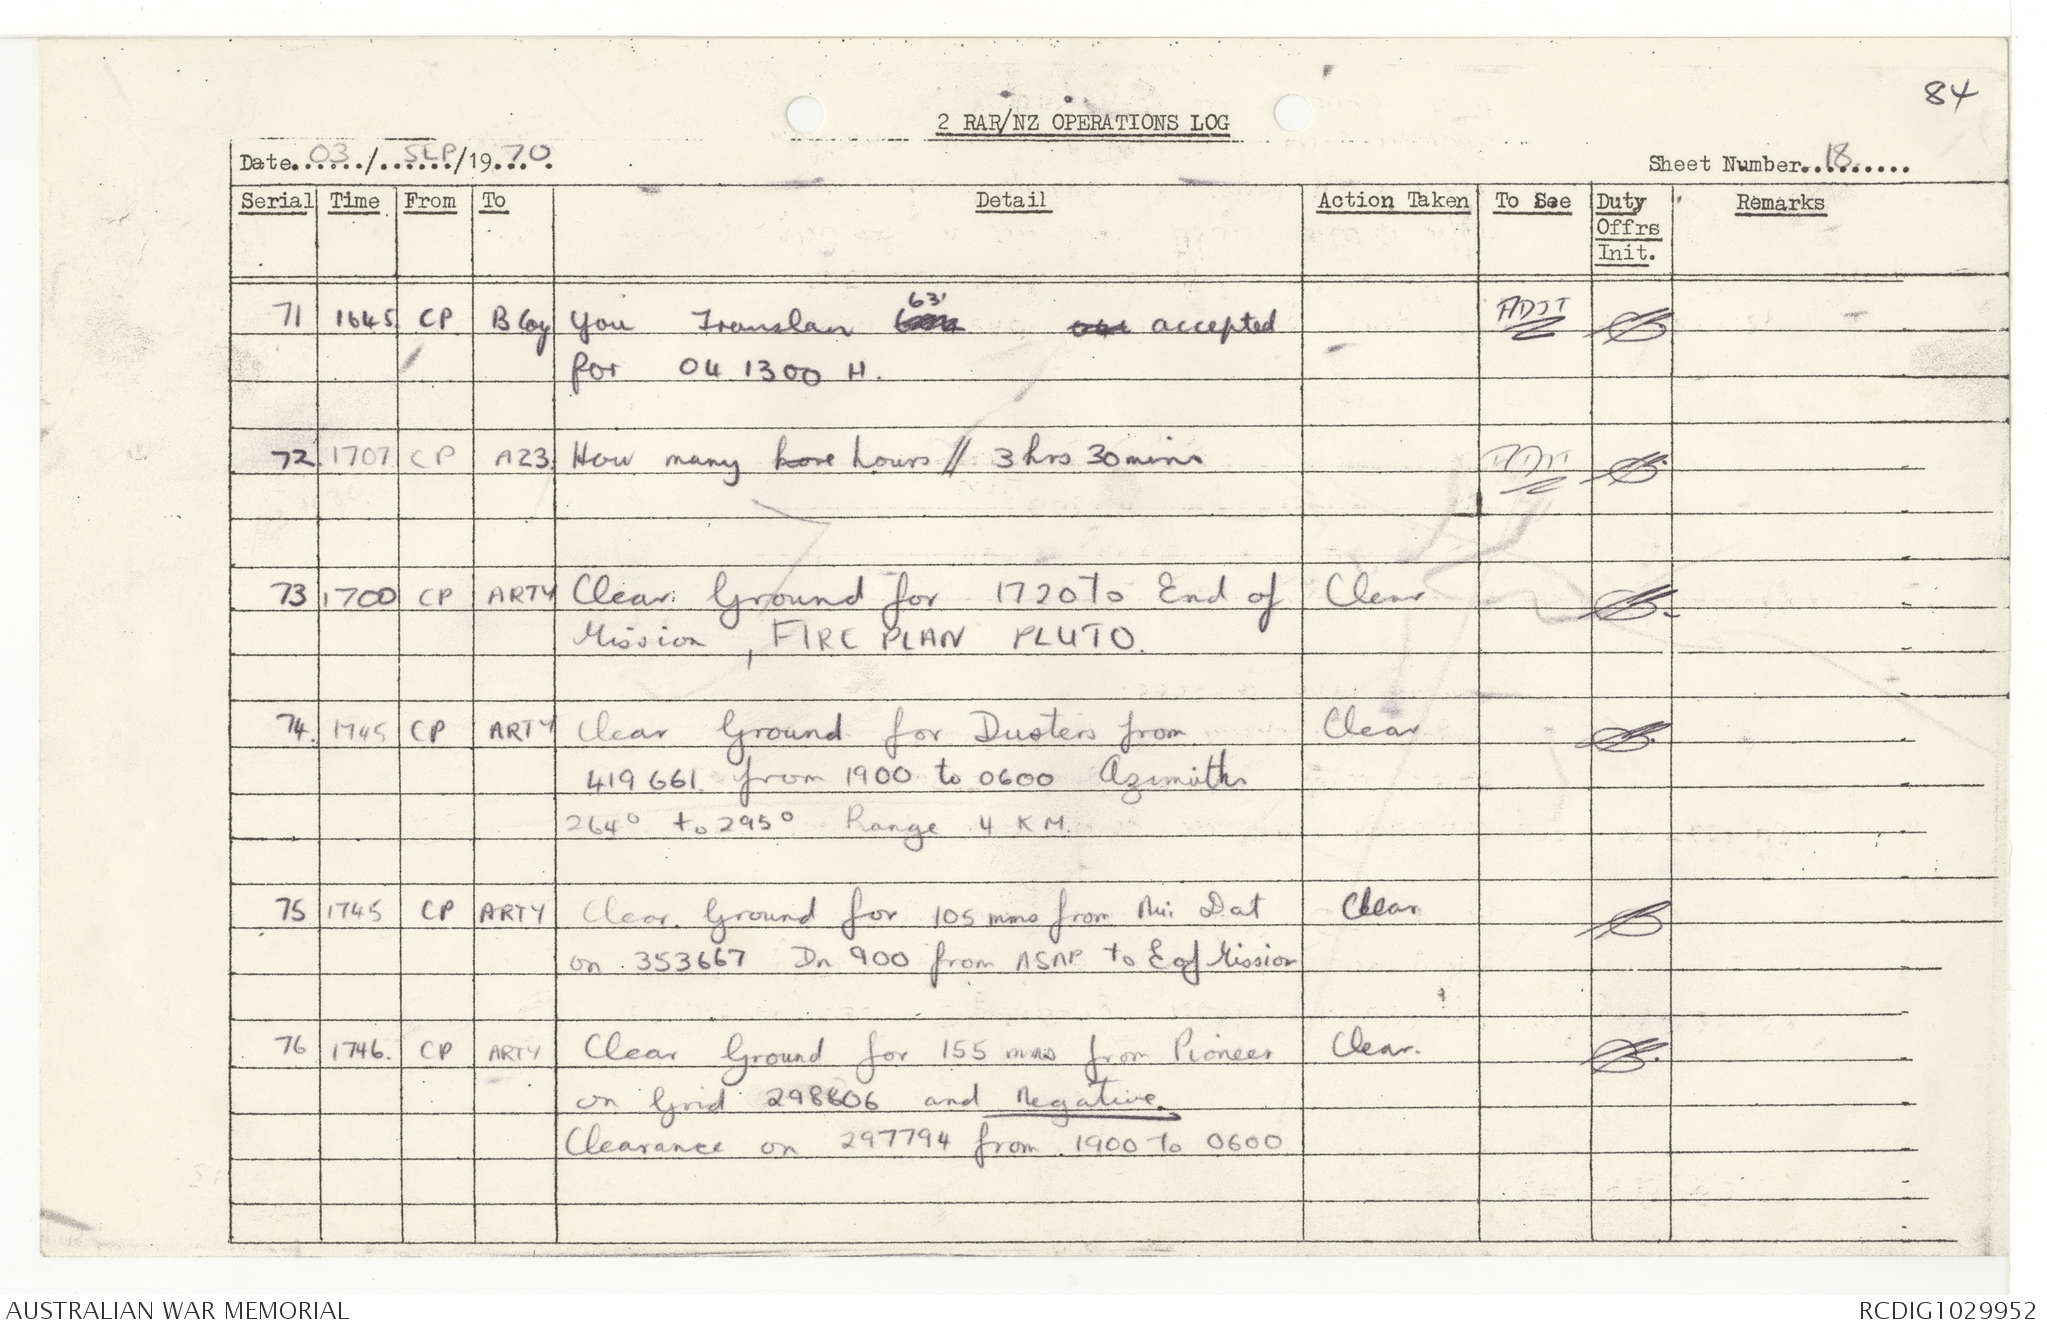 84
2 RAR/NZ OPERATIONS LOG
Date 03/SEP/1970
Sheet Number 18
Serial Time From To Detail Action Taken To See Duty Offrs Init. Remarks
71 1645 CP B Coy You Translan 63' accepted ADJT
for 04 1300 H.
72. 1707 CP A23 How many hours // 3 hrs 30 mins ADJT
73 1700 CP ARTY Clear Ground for 1720 To End of Clear
Mission, FIRE PLAN PLUTO.
74. 1745 CP ARTY Clear Ground for Dusters from Clear
419661. from 1900 to 0600 Azimuth
264° to 295° Range 4 KM.
75 1745 CP ARTY Clear Ground for 105 mms from Nui Dat Clear
on 353667 Dn 900 from ASAP to E of Mission
76 1746. CP ARTY Clear Ground for 155 mms from Pioneer Clear.
on Grid 298806 and Negative
Clearance on 297794 from 1900 To 0600
AUSTRALIAN WAR MEMORIAL
RCDIG1029952